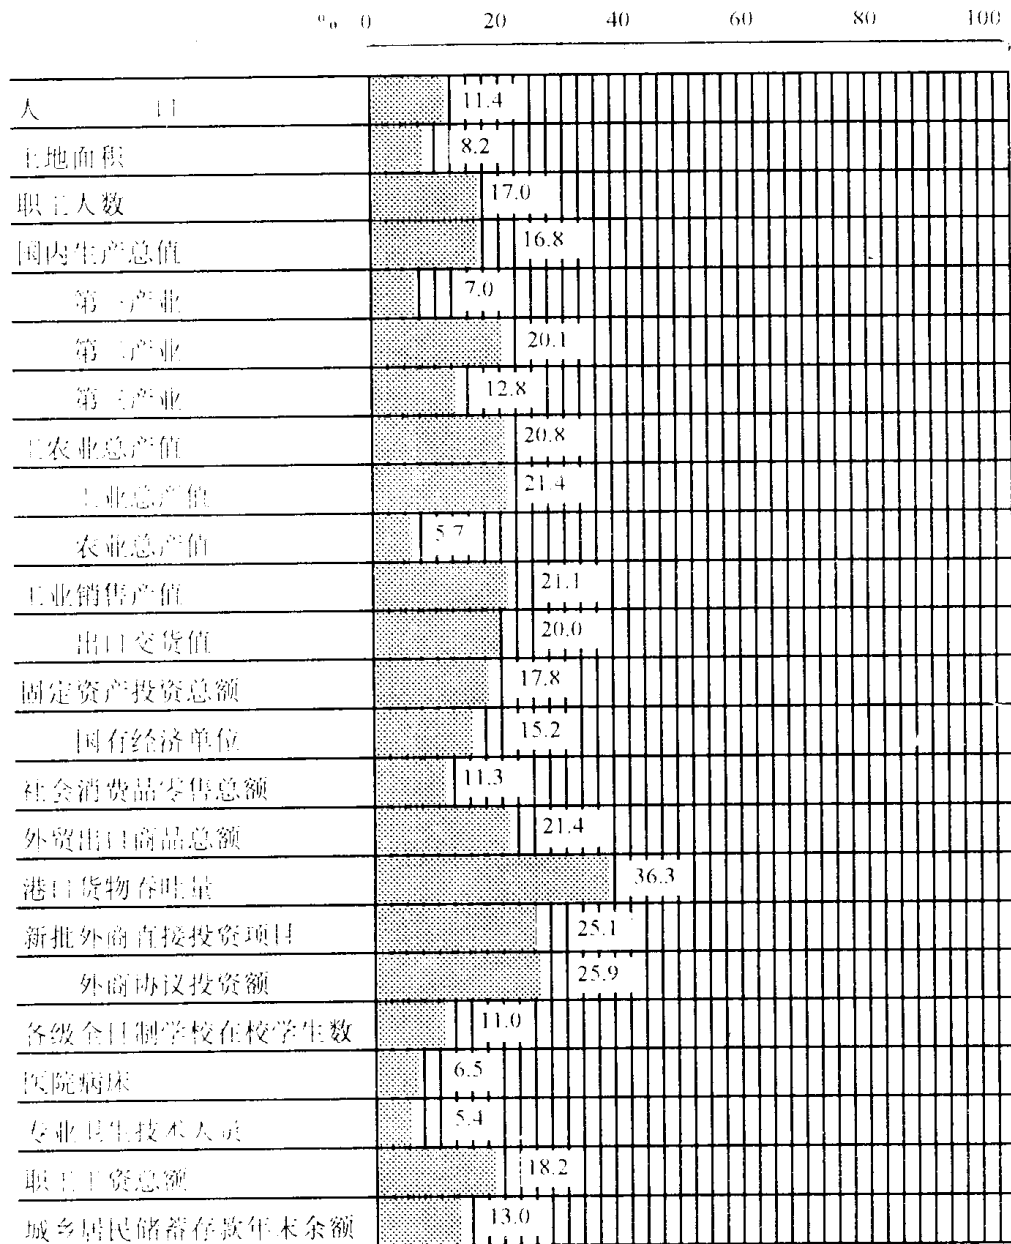 % 0 20 40 60 80 100
人 口 11.4
土地面积 8.2
职工人数 17.0
国内生产总值 16.8
第一产业 7.0
第二产业 20.1
第三产业 12.8
工农业总产值 20.8
工业总产值 21.4
农业总产值 5.7
工业销售产值 21.1
出口交货值 20.0
固定资产投资总额 17.8
国有经济单位 15.2
社会消费品零售总额 11.3
外贸出口商品总额 21.4
港口货物吞吐量 36.3
新批外商直接投资项目 25.1
外商协议投资额 25.9
各级全日制学校在校学生数 11.0
医院病床 6.5
专业卫生技术人员 5.4
职工工资总额 18.2
城乡居民储蓄存款年末余额 13.0